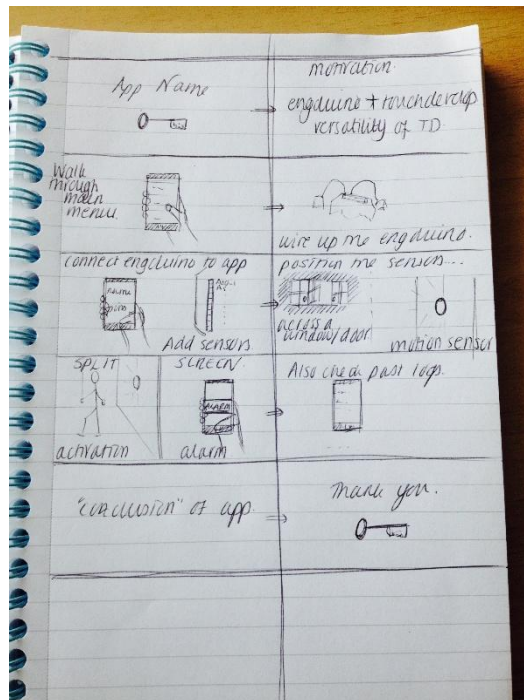 App Name
motivation.
engduino + touchdevelop
versatility of TD.
Walk
through
main
menu.
wire up the engduino.
connect engduino to app
Add sensors
position the sensor....
across a
window/door
motion sensor
SPLIT
SCREEN.
activation
alarm
ALARM
Also check past logs.
"conclusion" of app.
Thank you.